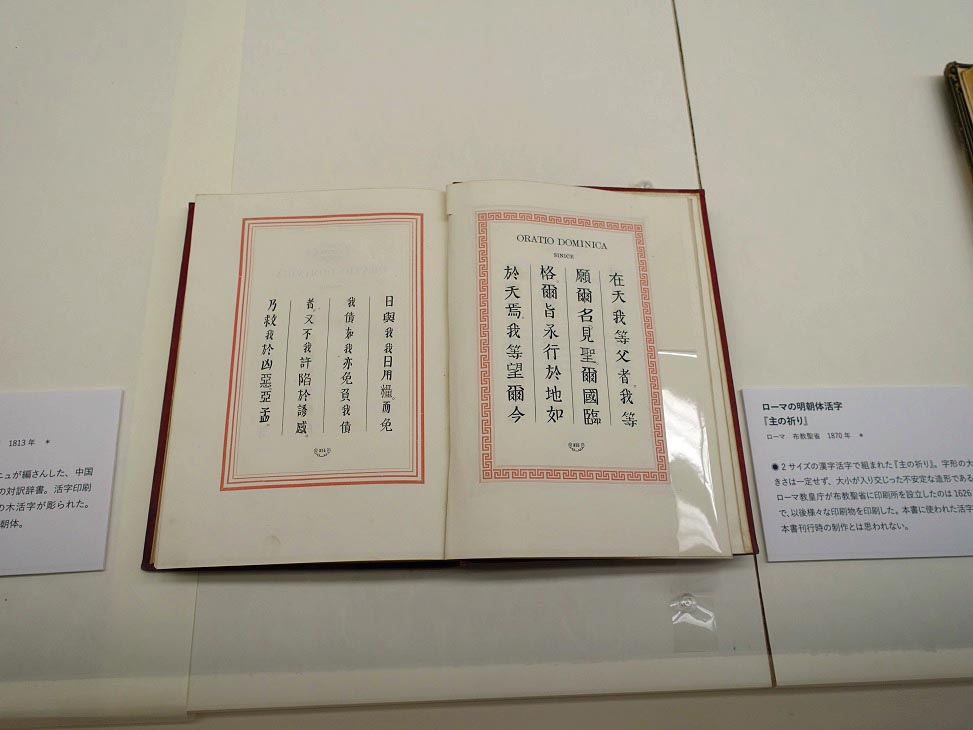 1813 年 ＊
ニュが編さんした、中国
の対訳辞書。活字印刷
の木活字が彫られた。
朝体。
ORATIO DOMINICA
SINICE
在天我等父者。我等
願爾名見聖爾國臨
格爾旨承行於地如
於天焉。我等望爾今
日與我我日用糧。而免
我債如我亦免負我債
者。又不我許陷於誘感
乃救我於凶惡亞孟。
ローマの明朝体活字
『主の祈り』
ローマ 布教聖省 1870 年 ＊
●2 サイズの漢字活字で組まれた『主の祈り』。字形の大
きさは一定せず、大小が入り交じった不安定な造形である
ローマ教皇庁が布教聖省に印刷所を設立したのは 1626
で、以後様々な印刷物を印刷した。本書に使われた活字
本書刊行時の制作とは思われない。